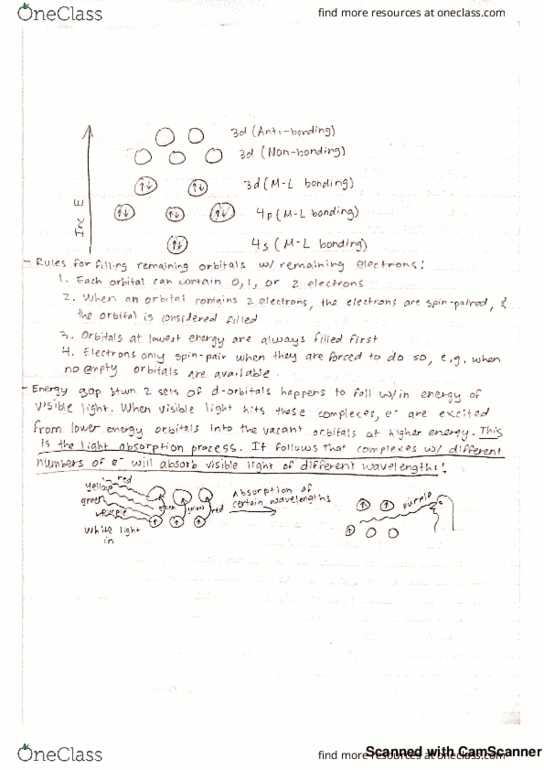 OneClass
find more resources at oneclass.com
3d (Anti-bonding)
3d (Non-bonding)
3d (M-L bonding)
4p (M-L bonding)
4s (M-L bonding)
Inc E
- Rules for filling remaining orbitals w/ remaining electrons:
1. Each orbital can contain 0, 1, or 2 electrons
2. When an orbital contains 2 electrons, the electrons are spin-paired, &
the orbital is considered filled
3. Orbitals at lowest energy are always filled first
4. Electrons only spin-pair when they are forced to do so, e.g. when
no empty orbitals are available.
- Energy gap btwn 2 sets of d-orbitals happens to fall w/in energy of
visible light. When visible light hits these complexes, e⁻ are excited
from lower energy orbitals into the vacant orbitals at higher energy. This
is the light absorption process. It follows that complexes w/ different
numbers of e⁻ will absorb visible light of different wavelengths!
red
yellow
green
purple
White light
in
red
Absorption of
certain wavelengths
purple
OneClass
find more resources at oneclass.com
Scanned with CamScanner